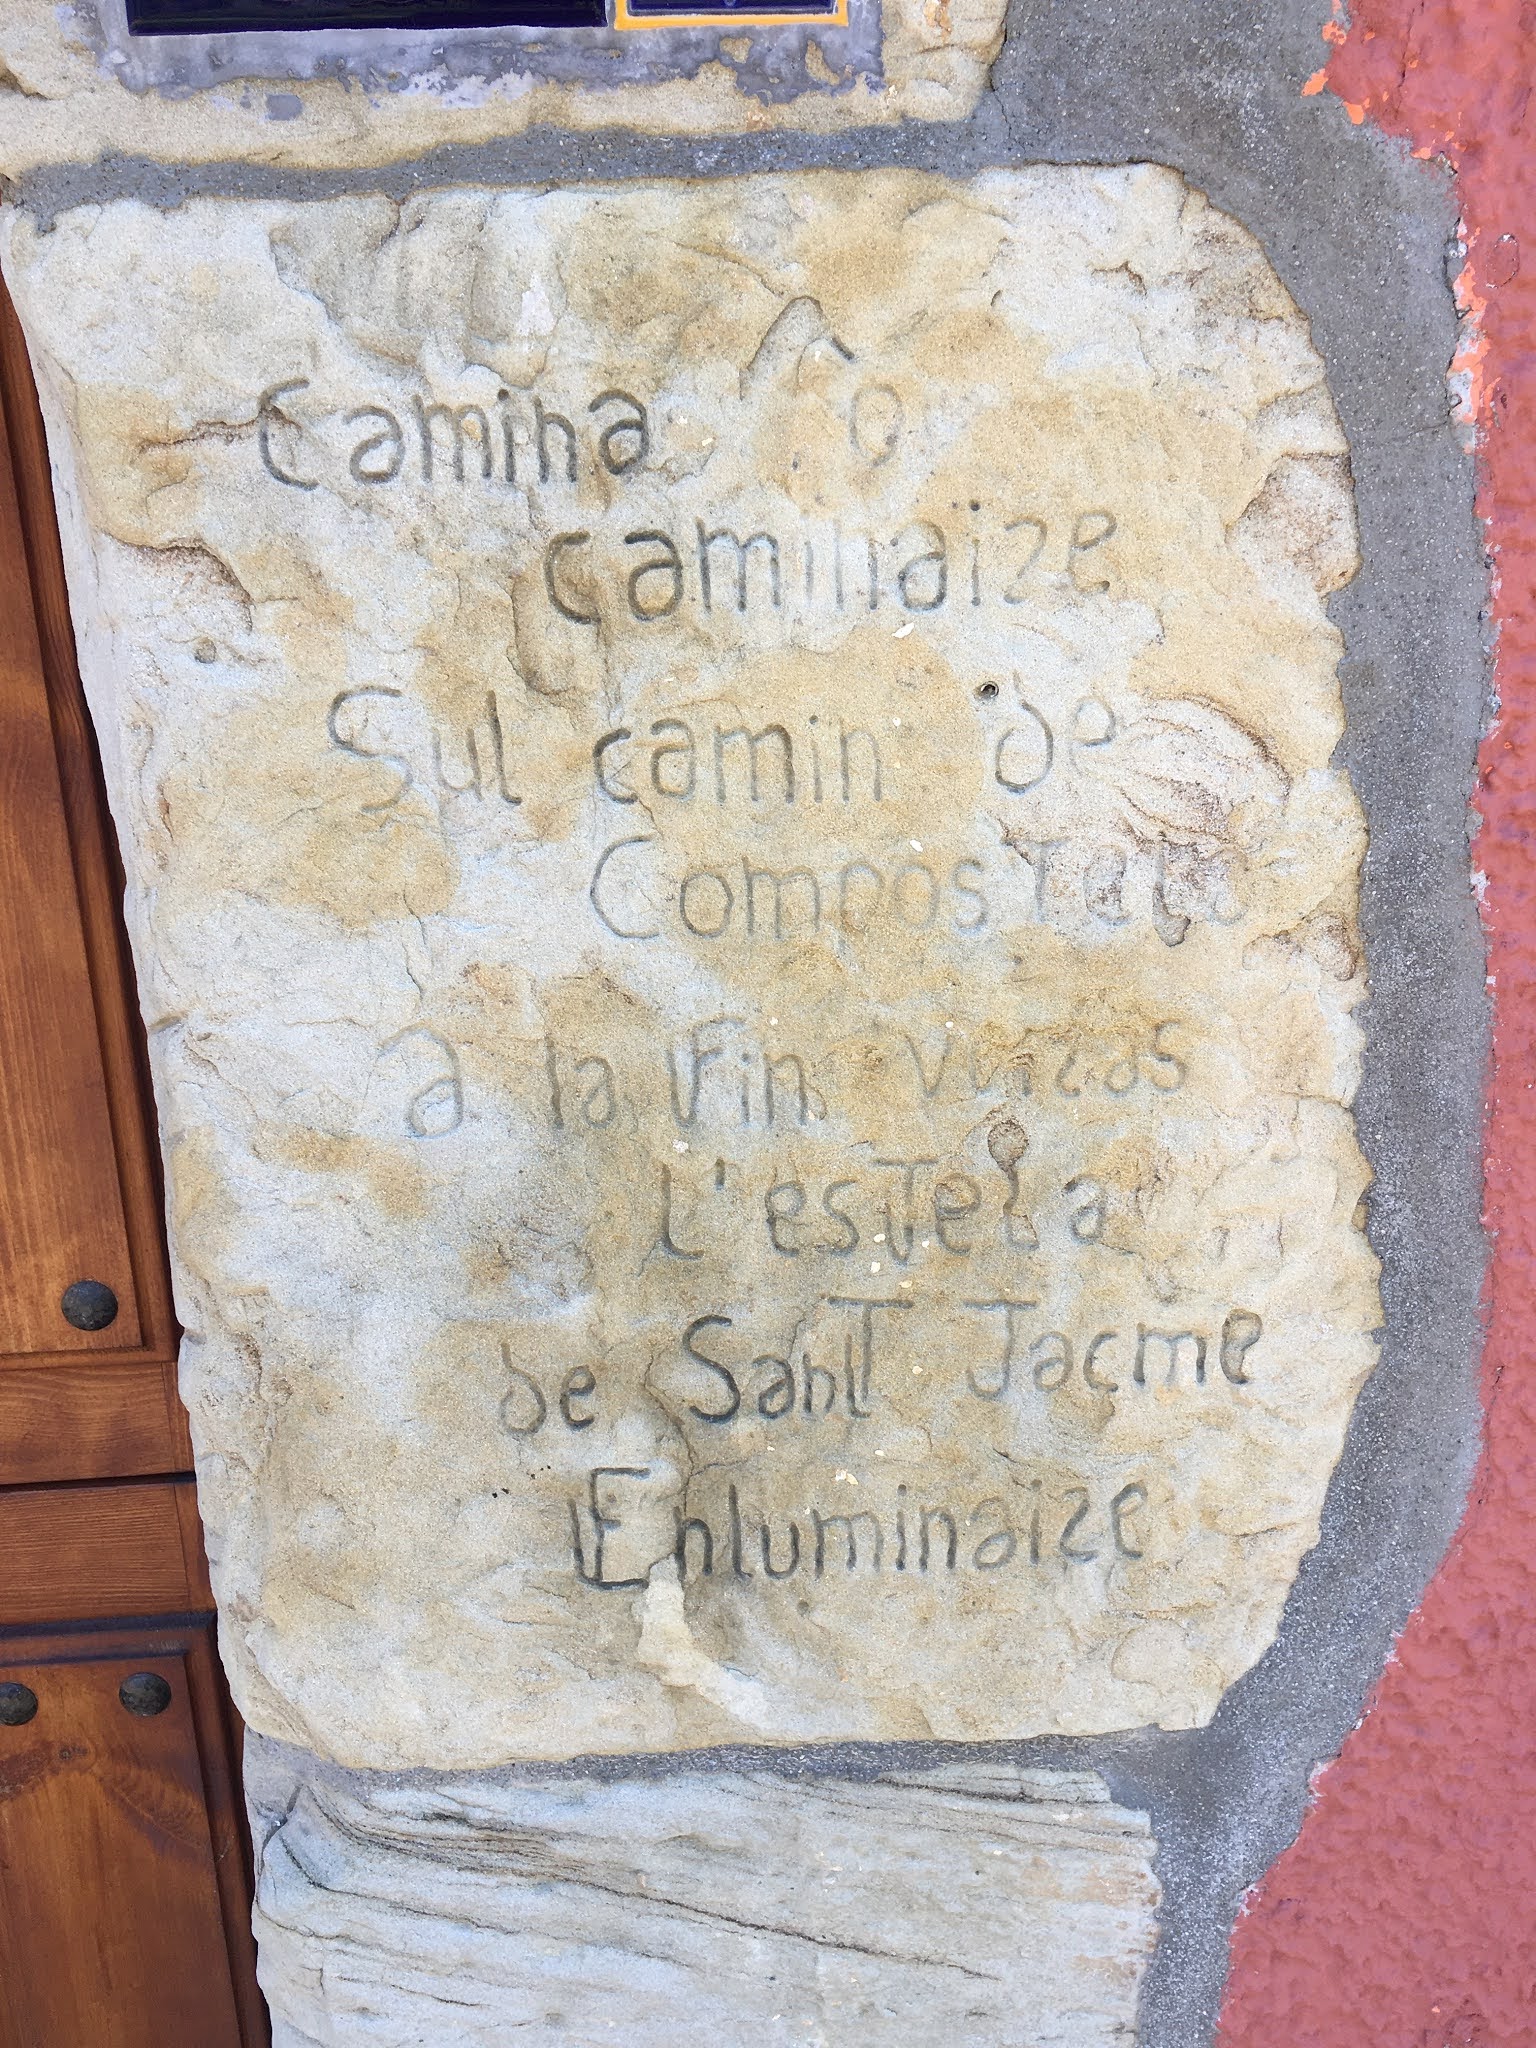 Camina Ô
caminaïre
Sul camin de
Compostela
a la fin veiras
l'estela
de Sant Jacme
Enluminaire